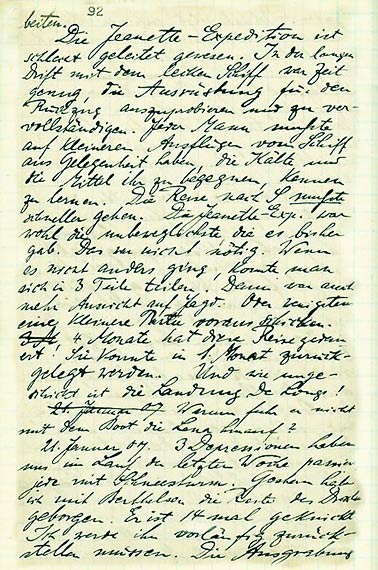 92
beiten.
Die Jeanette-Expedition ist
schlecht geleitet gewesen. In der langen
Drift mit dem lecken Schiff war Zeit
genug, die Ausrüstung für den
Rückzug auszuprobieren und zu ver-
vollständigen. Jeder Mann musste
auf kleineren Ausflügen vom Schiff
aus Gelegenheit haben, die Kälte und
die Mittel ihr zu begegnen, kennen
zu lernen. Die Reise nach S. musste
schneller gehen. Die Jeanette-Exp. war
wohl die unbeweglichste die es bisher
gab. Das war nicht nötig. Wenn
es nicht anders ging, konnte man
sich in 3 Teile teilen. Dann war auch
mehr Aussicht auf Jagd. Oder wenigstens
eine kleinere Partie voraus schicken.
4 Monate hat diese Reise gedau
ert! Sie konnte in 1 Monat zurück-
gelegt werden. Und wie unge-
schickt ist die Landung De Longs!
21. Januar 07 Warum fuhr er nicht
mit dem Boot die Lena hinauf?
21. Januar 07. 3 Depressionen haben
uns im Lauf der letzten Woche passiert
jede mit Schneesturm. Gestern habe
ich mit Berthelsen die Reste des
geborgen. Er ist 14 mal geknickt
Ich werde ihn vorläufig zurück-
stellen müssen. Die Ausgrabung